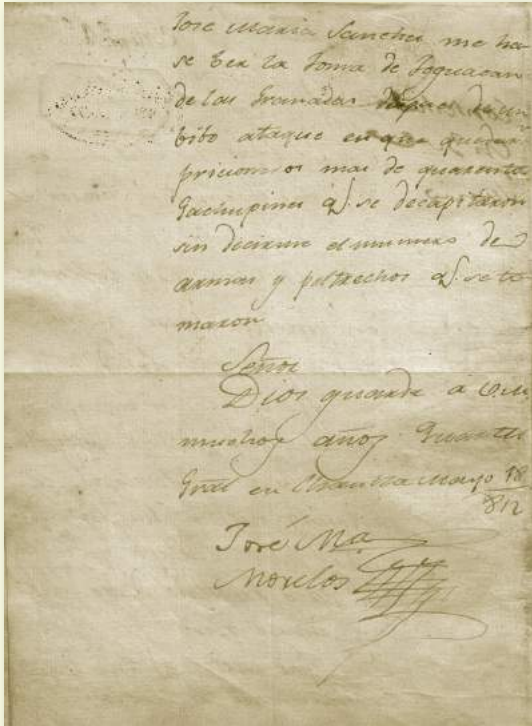 José Maria Sanchez me ha
se ber la toma de Teguacan
de las Granadas despues de un
bibo ataque en que quedaron
pricioneros mas de quarenta
Gachupines q.e se decapitaron
sin decirme el numero de
armas y peltrechos q.e se to
maron
Señor
Dios guarde a V.M.
muchos años Quartel
Gral en Chautla Mayo 18
812
José Ma.
Morelos